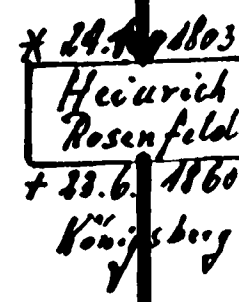 * 24. 1803
Heinrich
Rosenfeld
+ 23.6. 1860
Königsberg